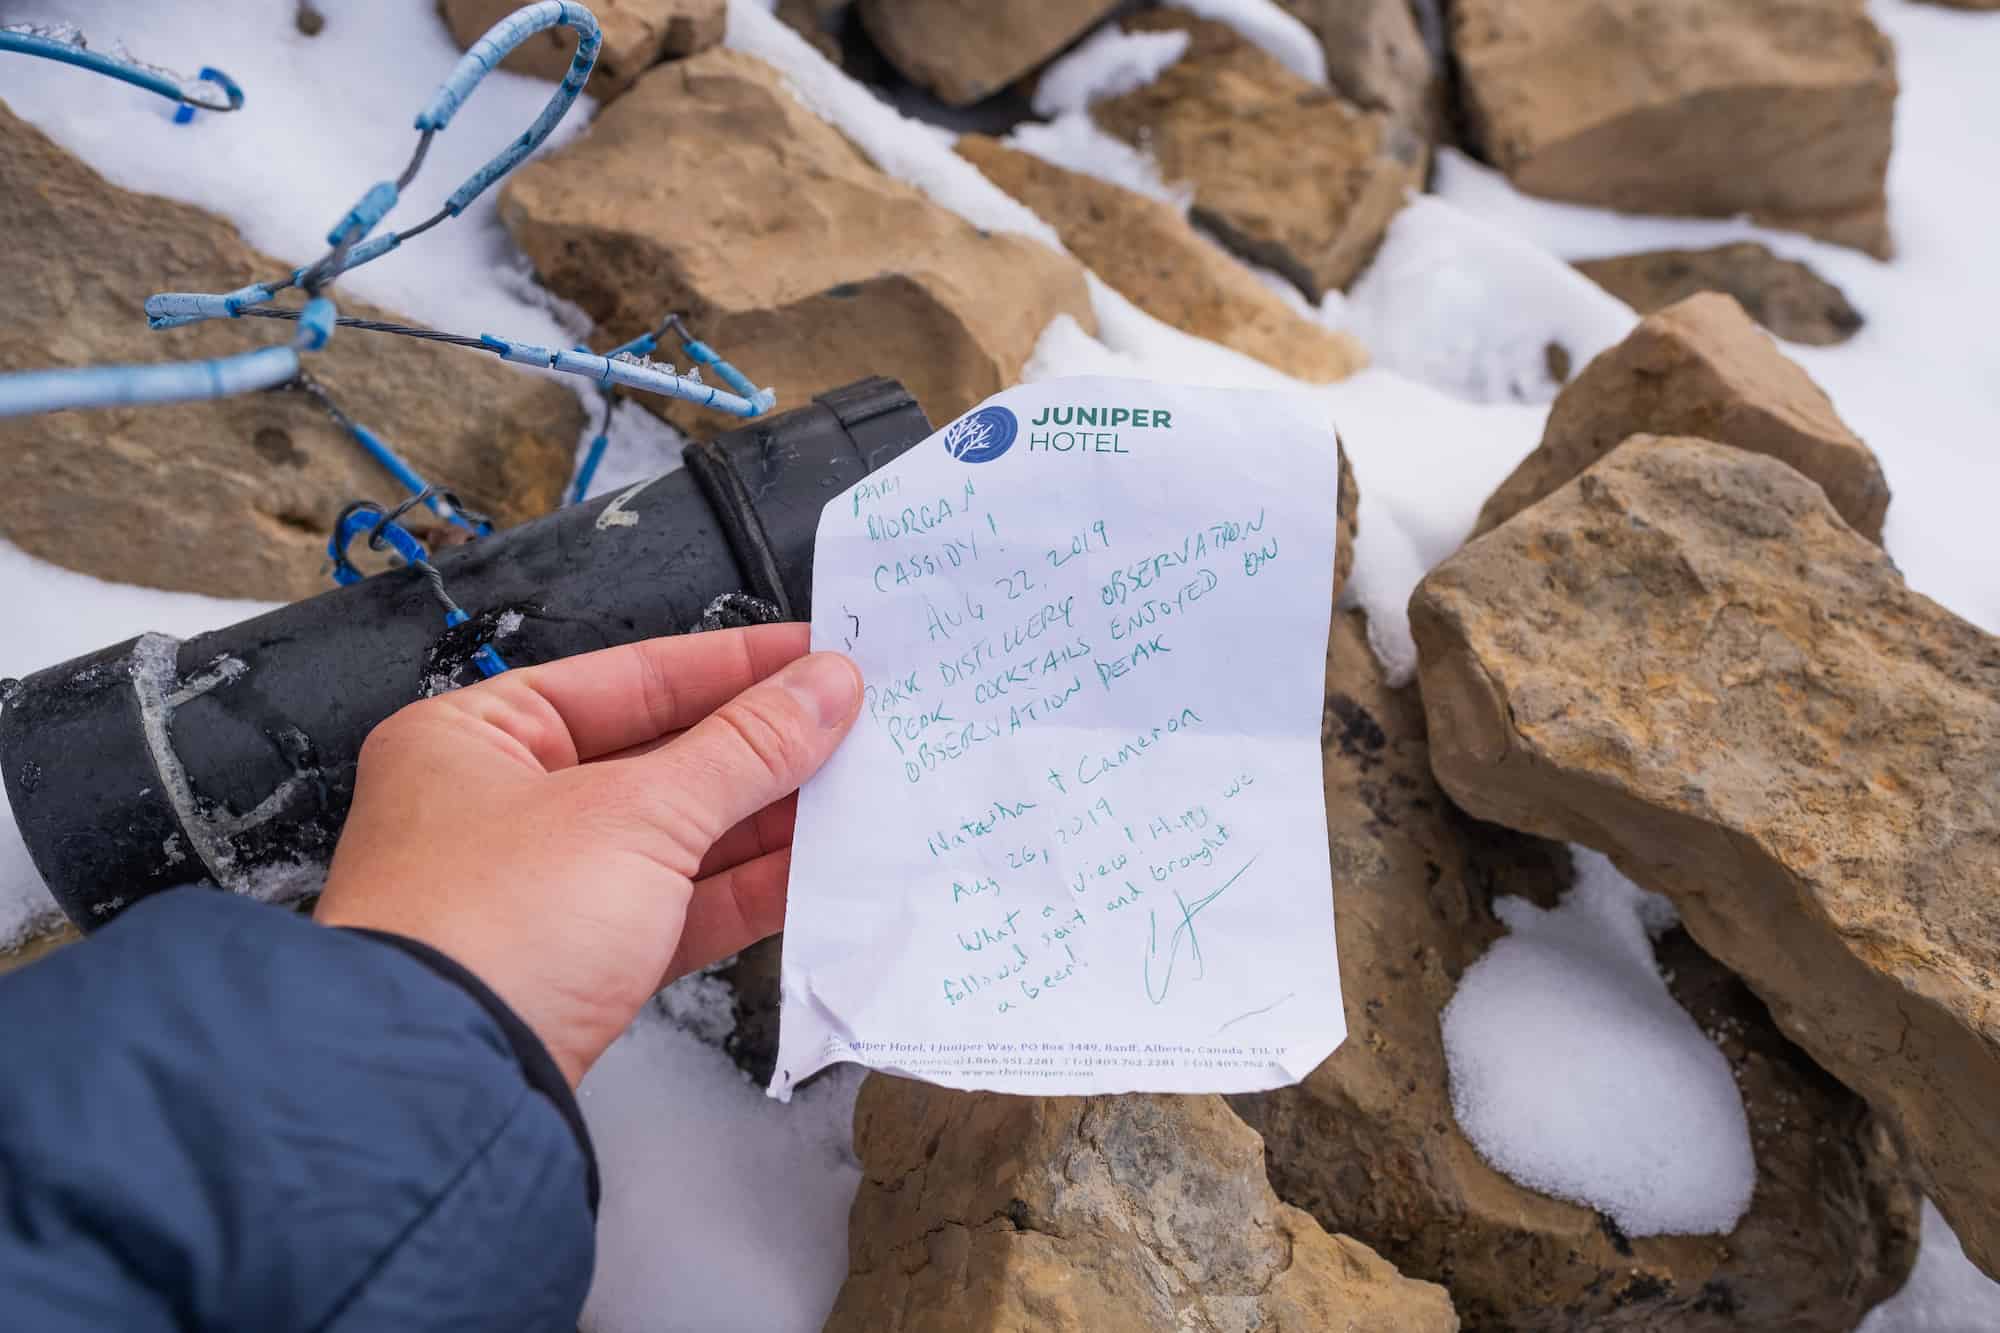 JUNIPER
HOTEL
PAM
MORGAN
CASSIDY!
AUG 22, 2019
PARK DISTILLERY OBSERVATION
PEAK COCKTAILS ENJOYED ON
OBSERVATION PEAK
Natasha + Cameron
Aug 26, 2019
What a view! Happy we
followed suit and brought
a beer!
uniper Hotel, 1 Juniper Way, PO Box 3449, Banff, Alberta, Canada T1L 1
(North America) 1.866.551.2281 T (+1) 403.762.2281 F (+1) 403.762.8
er.com www.thejuniper.com